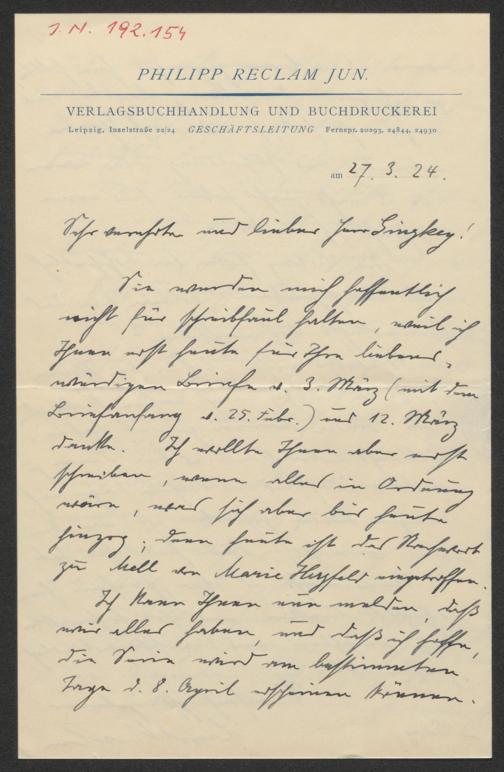 J. N. 192.154
PHILIPP RECLAM JUN.
VERLAGSBUCHHANDLUNG UND BUCHDRUCKEREI
Leipzig, Inselstraße 22/24 GESCHÄFTSLEITUNG Fernspr. 20293, 24844, 24930
am 27. 3. 24.
Sehr verehrter und lieber Herr Ginzkey!
Sie werden mich hoffentlich
nicht für schreibfaul halten, weil ich
Ihnen erst heute für Ihre liebens-
würdigen Briefe v. 3. März (mit dem
Briefanfang v. 25. Febr.) und 12. März
danke. Ich wollte Ihnen aber erst
schreiben, wenn alles in Ordnung
wäre, was sich aber bis heute
hinzog; denn heute ist das Nachwort
zu Mell von Marie Herzfeld eingetroffen.
Ich kann Ihnen nun melden, daß
wir alles haben, und daß ich hoffe,
die Serie wird am bestimmten
Tage d. 8. April erscheinen können.